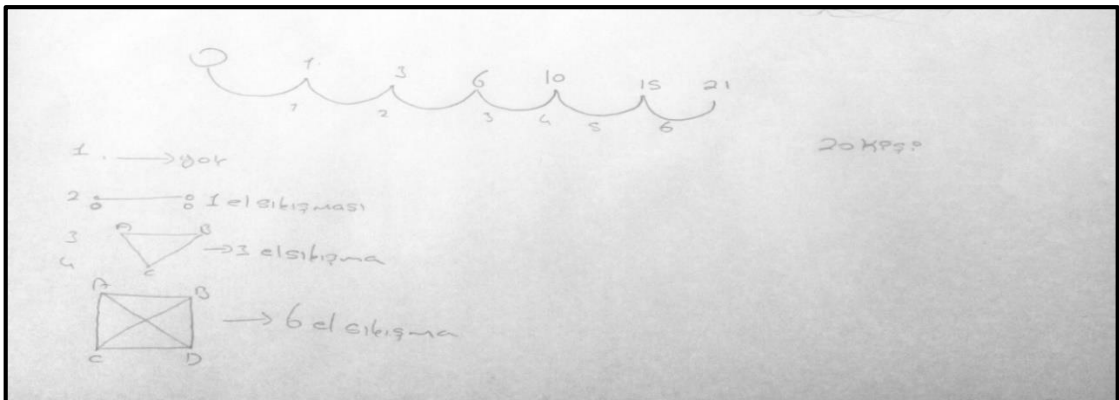 0 1 3 6 10 15 21
1 2 3 4 5 6
20 kişi
1 . → yok
2 1 el sıkışması
3 A B C → 3 el sıkışma
4
A B
→ 6 el sıkışma
C D